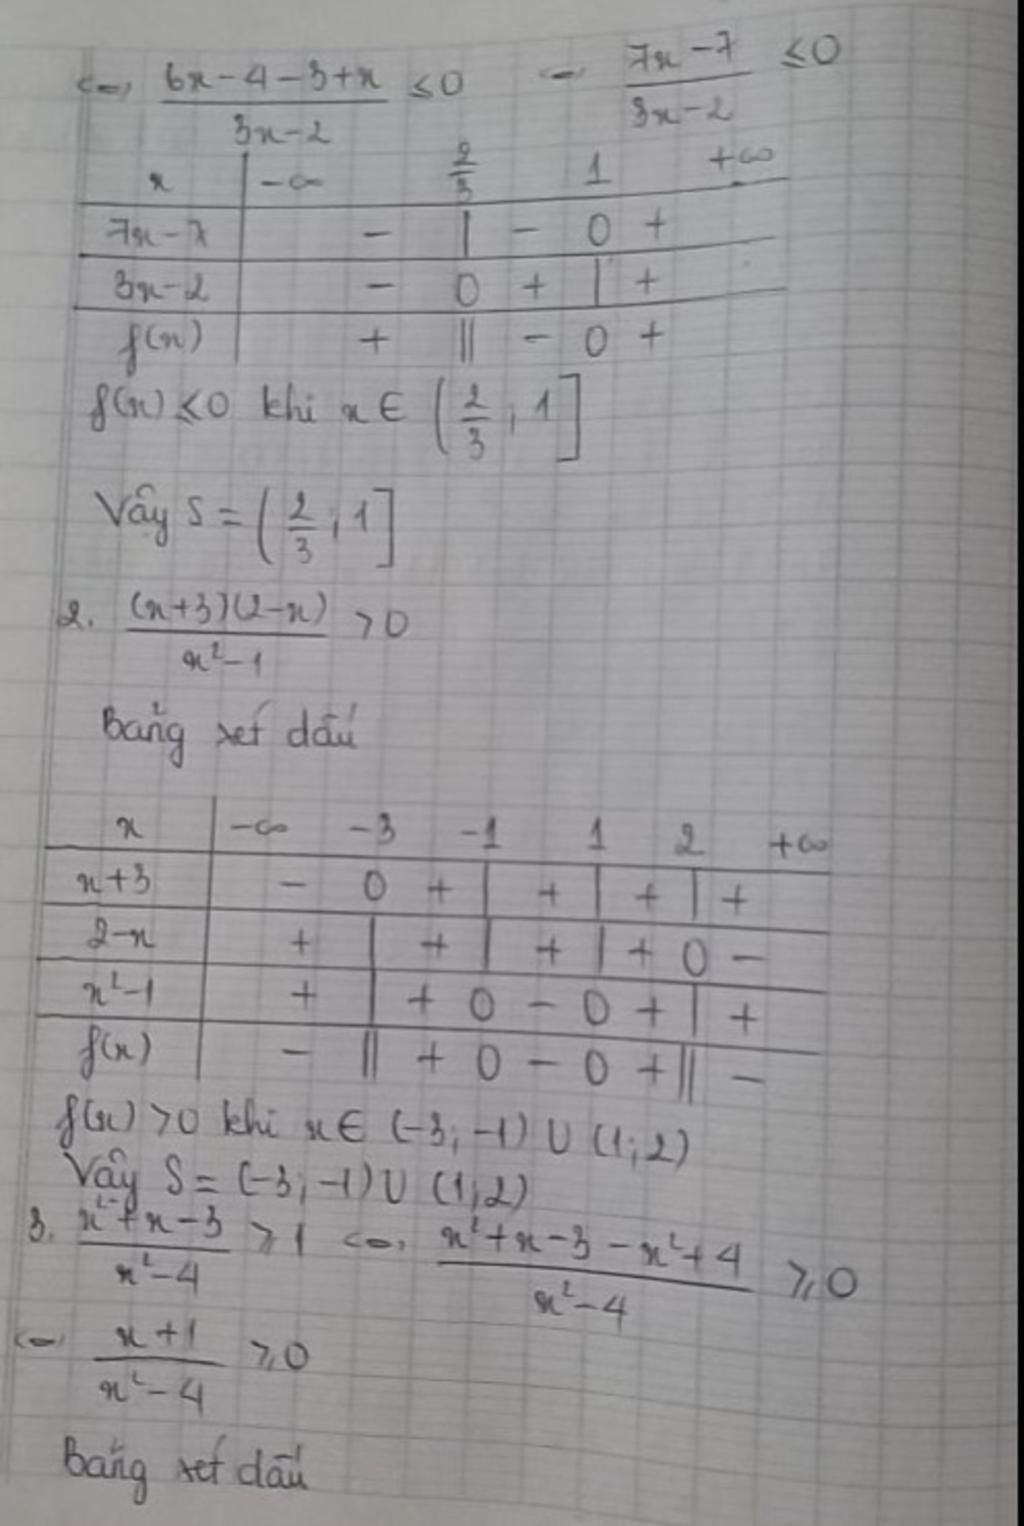 <=> (6x-4-3+x)/(3x-2) ≤ 0 <=> (7x-7)/(3x-2) ≤ 0
x | -∞ 2/3 1 +∞
7x-7 | - | - 0 +
3x-2 | - 0 + | +
f(x) | + || - 0 +
f(x) ≤ 0 khi x ∈ (2/3; 1]
Vậy S = (2/3; 1]
2. (x+3)(2-x)/(x²-1) > 0
Bảng xét dấu
x | -∞ -3 -1 1 2 +∞
x+3 | - 0 + | + | + | +
2-x | + | + | + | + 0 -
x²-1 | + | + 0 - 0 + | +
f(x) | - || + 0 - 0 + || -
f(x) > 0 khi x ∈ (-3; -1) ∪ (1; 2)
Vậy S = (-3; -1) ∪ (1; 2)
3. (x²+x-3)/(x²-4) ≥ 1 <=> (x²+x-3-x²+4)/(x²-4) ≥ 0
<=> (x+1)/(x²-4) ≥ 0
Bảng xét dấu